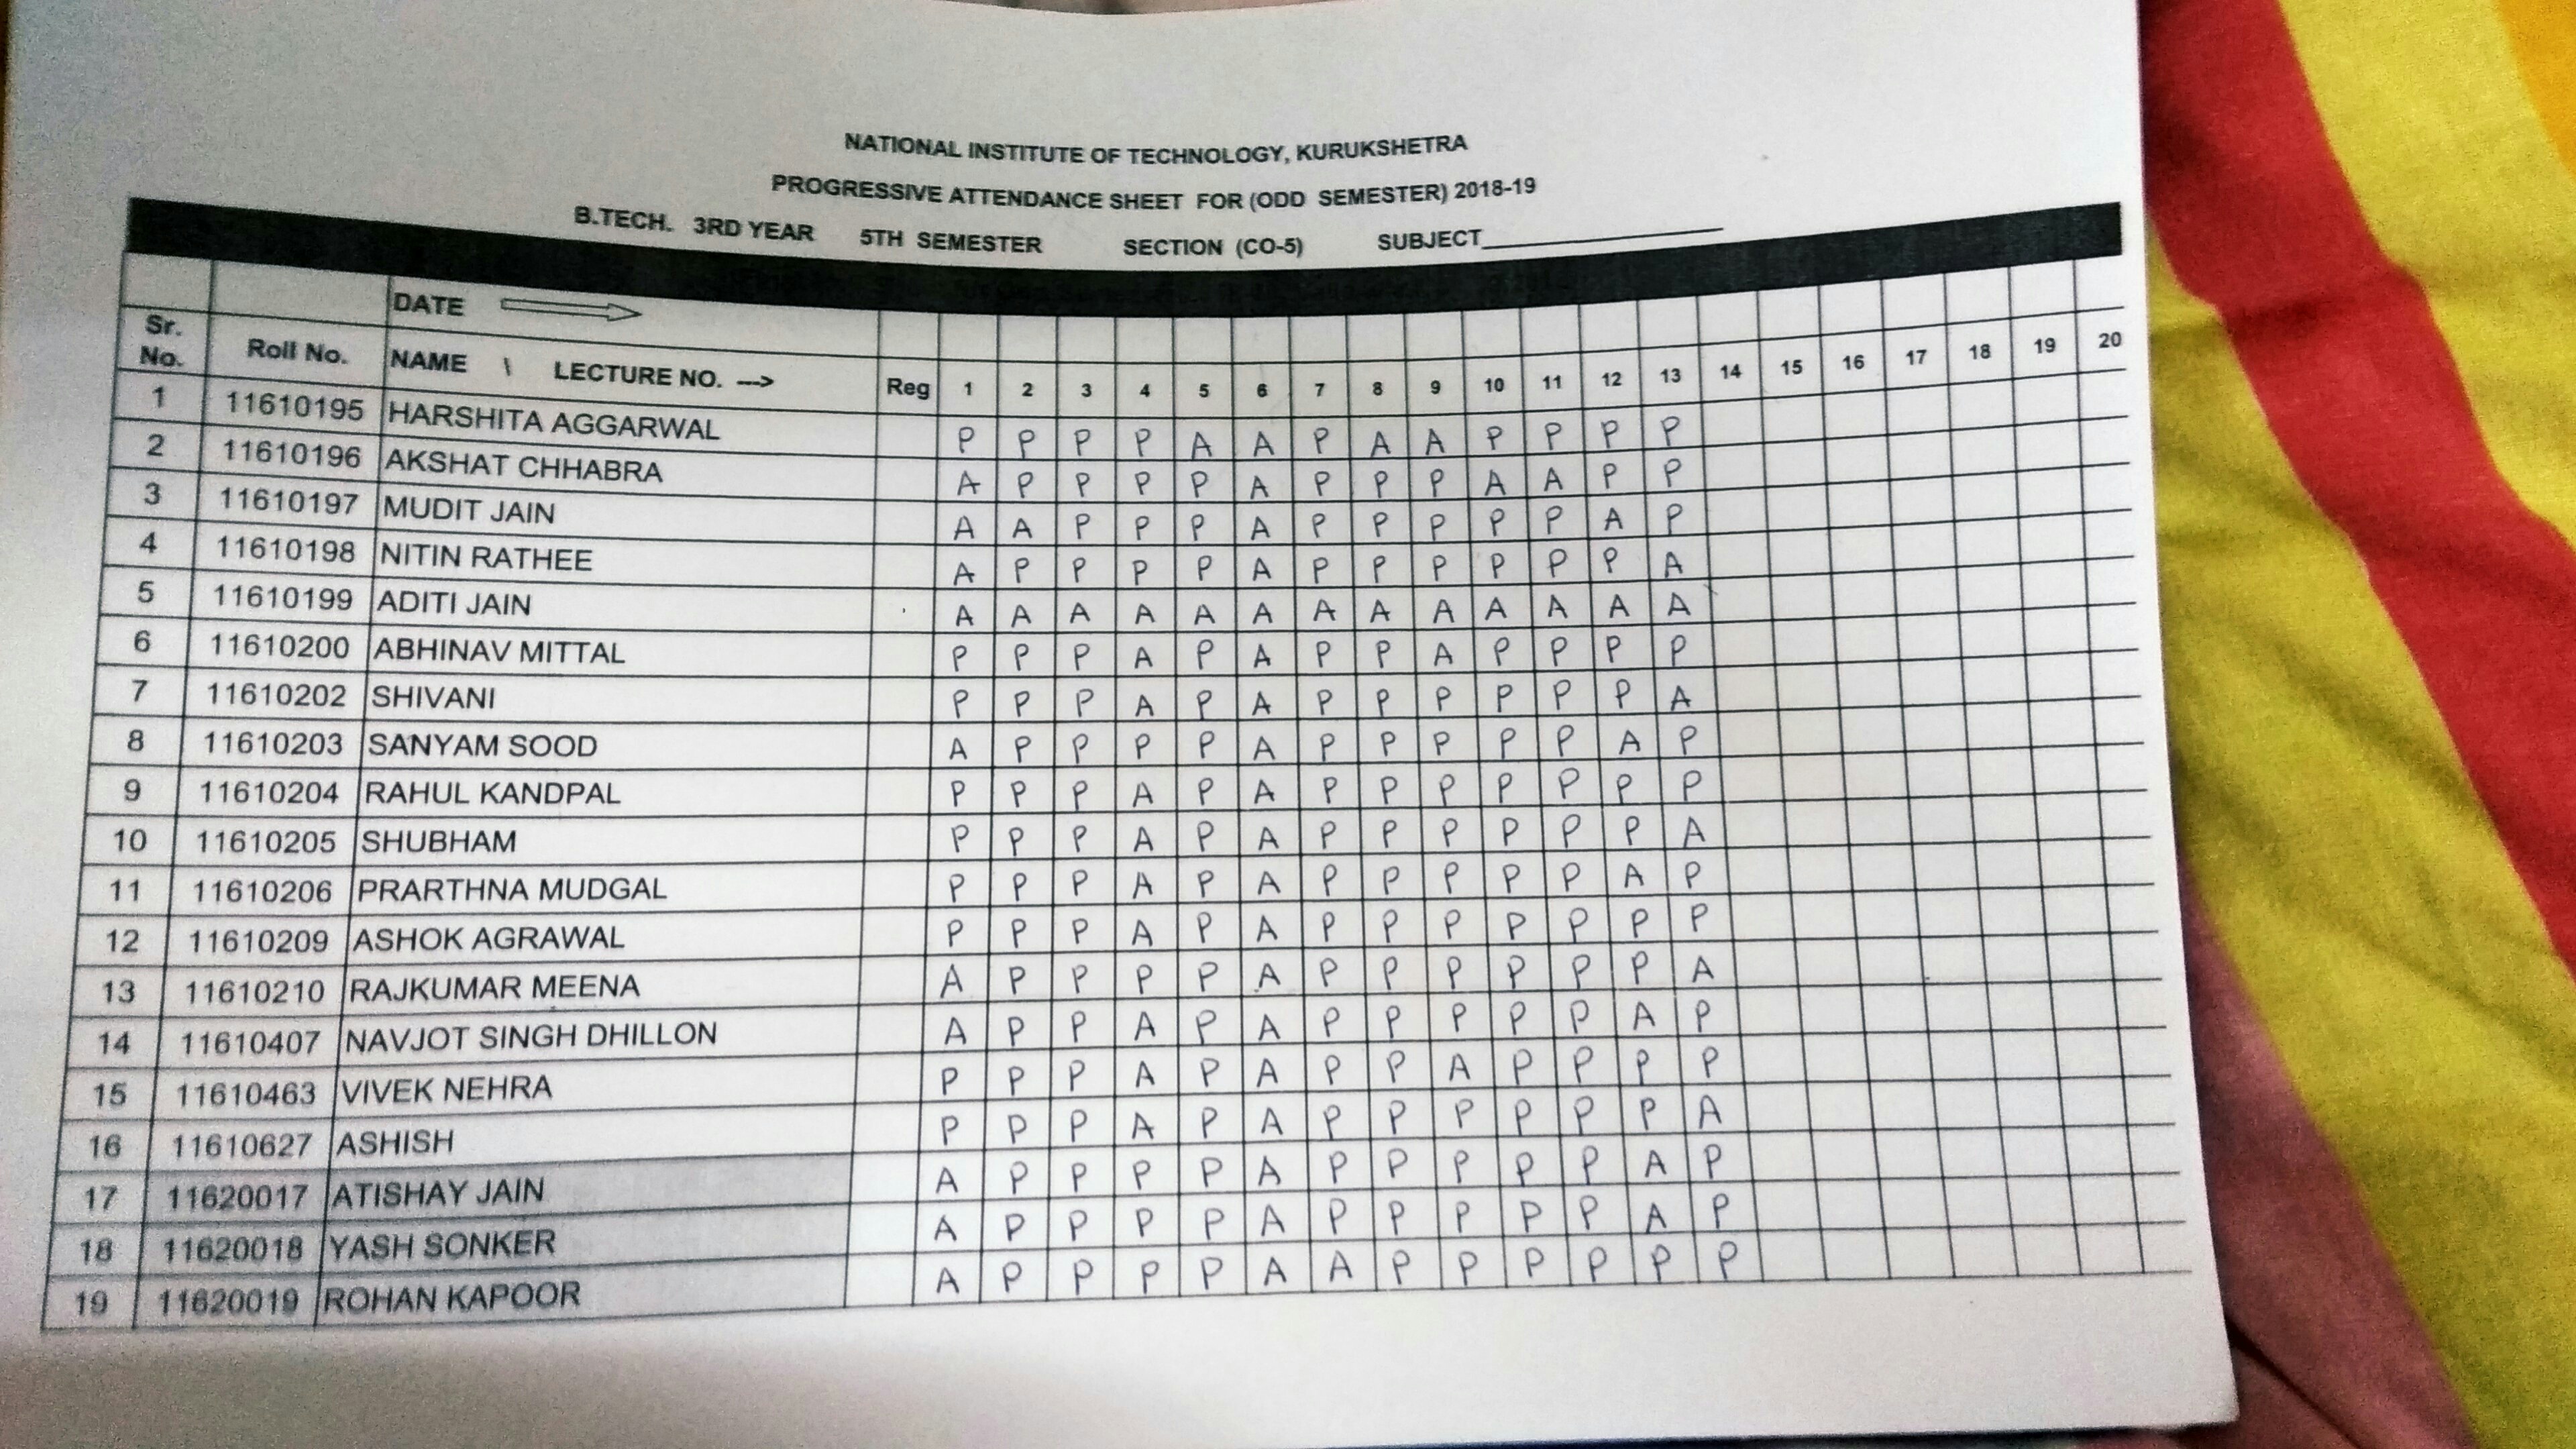 NATIONAL INSTITUTE OF TECHNOLOGY, KURUKSHETRA
PROGRESSIVE ATTENDANCE SHEET FOR (ODD SEMESTER) 2018-19
B.TECH. 3RD YEAR 5TH SEMESTER SECTION (CO-5) SUBJECT
DATE
Sr. No. Roll No. NAME \ LECTURE NO. ---> Reg 1 2 3 4 5 6 7 8 9 10 11 12 13 14 15 16 17 18 19 20
1 11610195 HARSHITA AGGARWAL P P P P A A P A A P P P P
2 11610196 AKSHAT CHHABRA A P P P P A P P P A A P P
3 11610197 MUDIT JAIN A A P P P A P P P P P A P
4 11610198 NITIN RATHEE A P P P P A P P P P P P A
5 11610199 ADITI JAIN A A A A A A A A A A A A A
6 11610200 ABHINAV MITTAL P P P A P A P P A P P P P
7 11610202 SHIVANI P P P A P A P P P P P P A
8 11610203 SANYAM SOOD A P P P P A P P P P P A P
9 11610204 RAHUL KANDPAL P P P A P A P P P P P P P
10 11610205 SHUBHAM P P P A P A P P P P P P A
11 11610206 PRARTHNA MUDGAL P P P A P A P P P P P A P
12 11610209 ASHOK AGRAWAL P P P A P A P P P P P P P
13 11610210 RAJKUMAR MEENA A P P P P A P P P P P P A
14 11610407 NAVJOT SINGH DHILLON A P P A P A P P P P P A P
15 11610463 VIVEK NEHRA P P P A P A P P A P P P P
16 11610627 ASHISH P P P A P A P P P P P P A
17 11620017 ATISHAY JAIN A P P P P A P P P P P A P
18 11620018 YASH SONKER A P P P P A P P P P P A P
19 11620019 ROHAN KAPOOR A P P P P A A P P P P P P